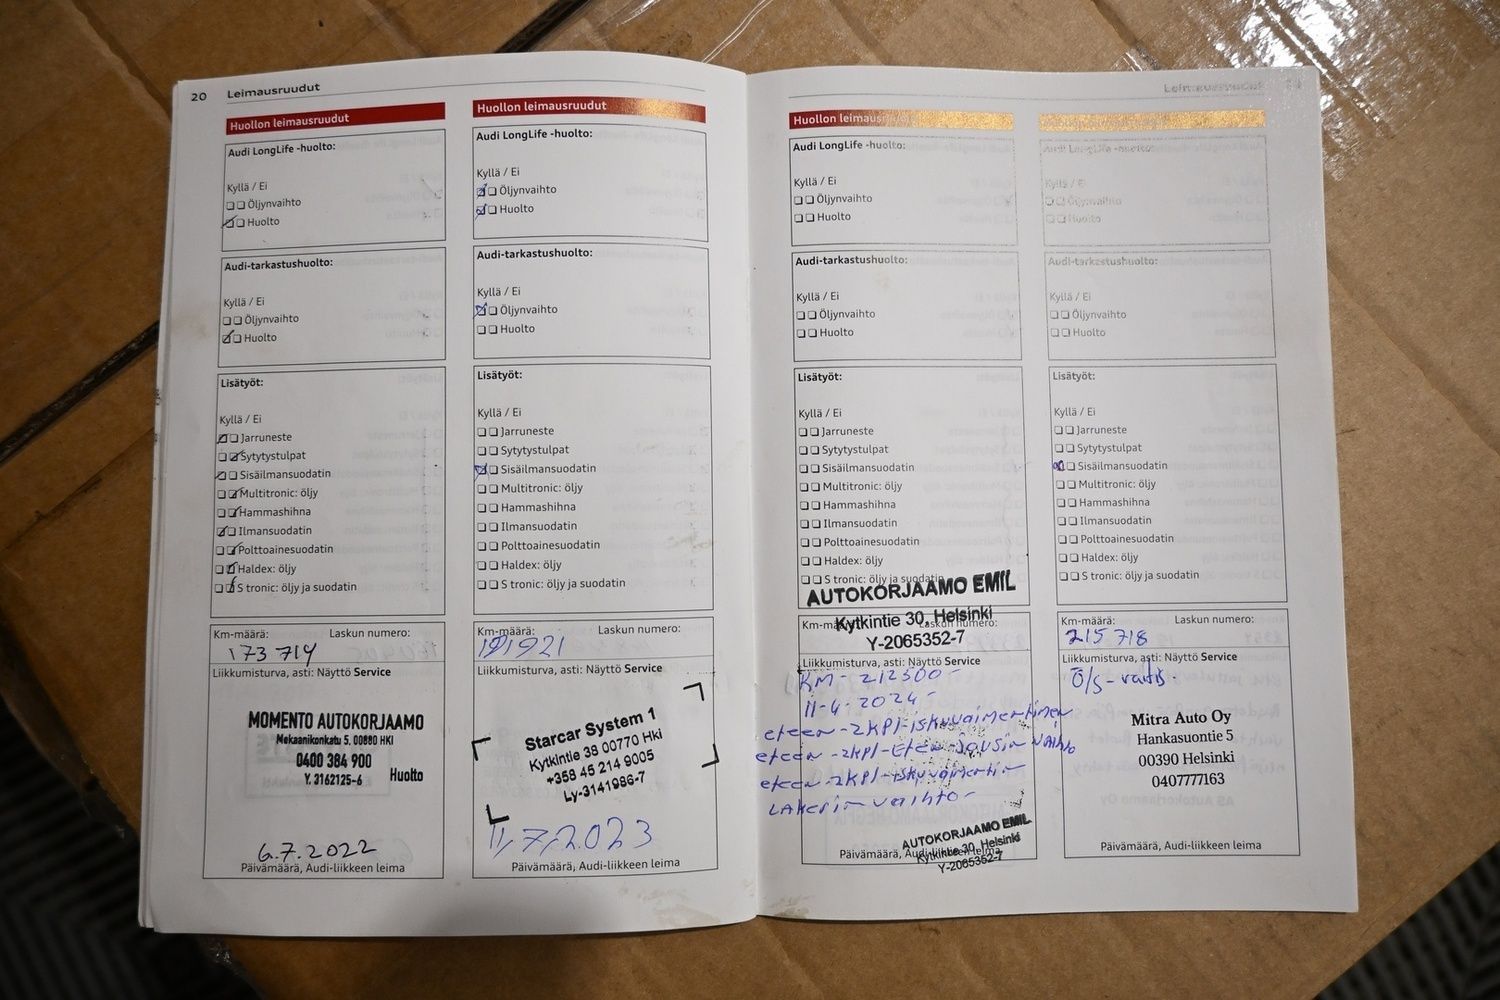 20 Leimausruudut
Huollon leimausruudut
Audi LongLife -huolto:
Kyllä / Ei
Öljynvaihto
Huolto
Audi-tarkastushuolto:
Kyllä / Ei
Öljynvaihto
Huolto
Lisätyöt:
Kyllä / Ei
Jarruneste
Sytytystulpat
Sisäilmansuodatin
Multitronic: öljy
Hammashihna
Ilmansuodatin
Polttoainesuodatin
Haldex: öljy
S tronic: öljy ja suodatin
Km-määrä: Laskun numero:
173 714
Liikkumisturva, asti: Näyttö Service
MOMENTO AUTOKORJAAMO
Mekaanikonkatu 5, 00880 HKI
0400 384 900
Y. 3162125-6 Huolto
6.7.2022
Päivämäärä, Audi-liikkeen leima
Huollon leimausruudut
Audi LongLife -huolto:
Kyllä / Ei
Öljynvaihto
Huolto
Audi-tarkastushuolto:
Kyllä / Ei
Öljynvaihto
Huolto
Lisätyöt:
Kyllä / Ei
Jarruneste
Sytytystulpat
Sisäilmansuodatin
Multitronic: öljy
Hammashihna
Ilmansuodatin
Polttoainesuodatin
Haldex: öljy
S tronic: öljy ja suodatin
Km-määrä: Laskun numero:
191921
Liikkumisturva, asti: Näyttö Service
Starcar System 1
Kytkintie 38 00770 Hki
+358 45 214 9005
Ly-3141986-7
11,7,2023
Päivämäärä, Audi-liikkeen leima
Leimausruudut
Huollon leimausruudut
Audi LongLife -huolto:
Kyllä / Ei
Öljynvaihto
Huolto
Audi-tarkastushuolto:
Kyllä / Ei
Öljynvaihto
Huolto
Lisätyöt:
Kyllä / Ei
Jarruneste
Sytytystulpat
Sisäilmansuodatin
Multitronic: öljy
Hammashihna
Ilmansuodatin
Polttoainesuodatin
Haldex: öljy
S tronic: öljy ja suodatin
AUTOKORJAAMO EMIL
Kytkintie 30, Helsinki
Y-2065352-7
Km-määrä: Laskun numero:
Liikkumisturva, asti: Näyttö Service
KM - 212300 -
11-4-2024 -
eteen -2KPl-iskuvaimentimen
eteen -2KPl-Eten-Jousin vaihto
eteen -2KPl-iskuvaimentin
LAKErin vaihto -
AUTOKORJAAMO EMIL
Kytkintie 30, Helsinki
Y-2065352-7
Päivämäärä, Audi-liikkeen leima
Audi LongLife -huolto:
Kyllä / Ei
Öljynvaihto
Huolto
Audi-tarkastushuolto:
Kyllä / Ei
Öljynvaihto
Huolto
Lisätyöt:
Kyllä / Ei
Jarruneste
Sytytystulpat
Sisäilmansuodatin
Multitronic: öljy
Hammashihna
Ilmansuodatin
Polttoainesuodatin
Haldex: öljy
S tronic: öljy ja suodatin
Km-määrä: Laskun numero:
215 718
Liikkumisturva, asti: Näyttö Service
Ö/S-vaihto.
Mitra Auto Oy
Hankasuontie 5
00390 Helsinki
0407777163
Päivämäärä, Audi-liikkeen leima